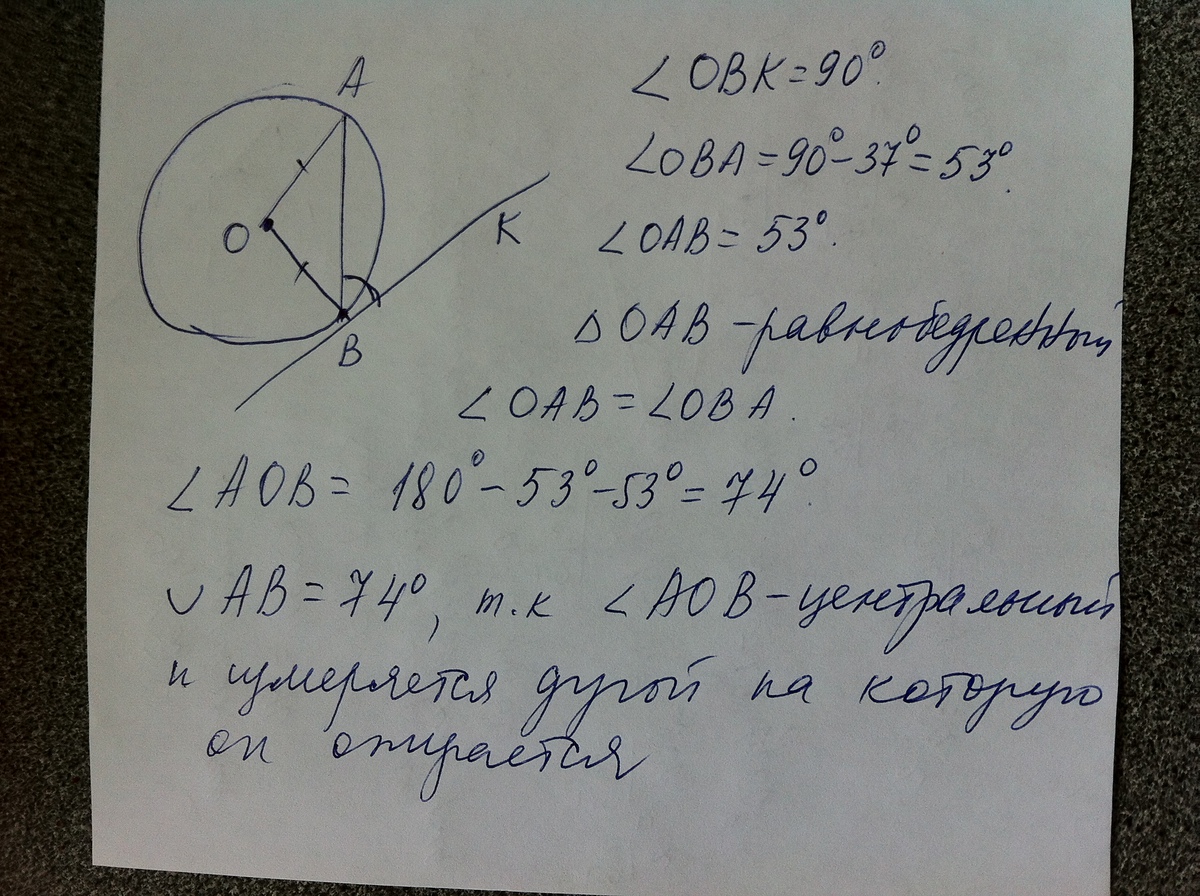 A
O
K
B
∠OBK=90°.
∠OBA=90°-37°=53°.
∠OAB=53°.
△OAB-равнобедренный
∠OAB=∠OBA.
∠AOB= 180°-53°-53°=74°.
◡AB=74°, т.к ∠AOB-центральный
и измеряется дугой на которую
он опирается